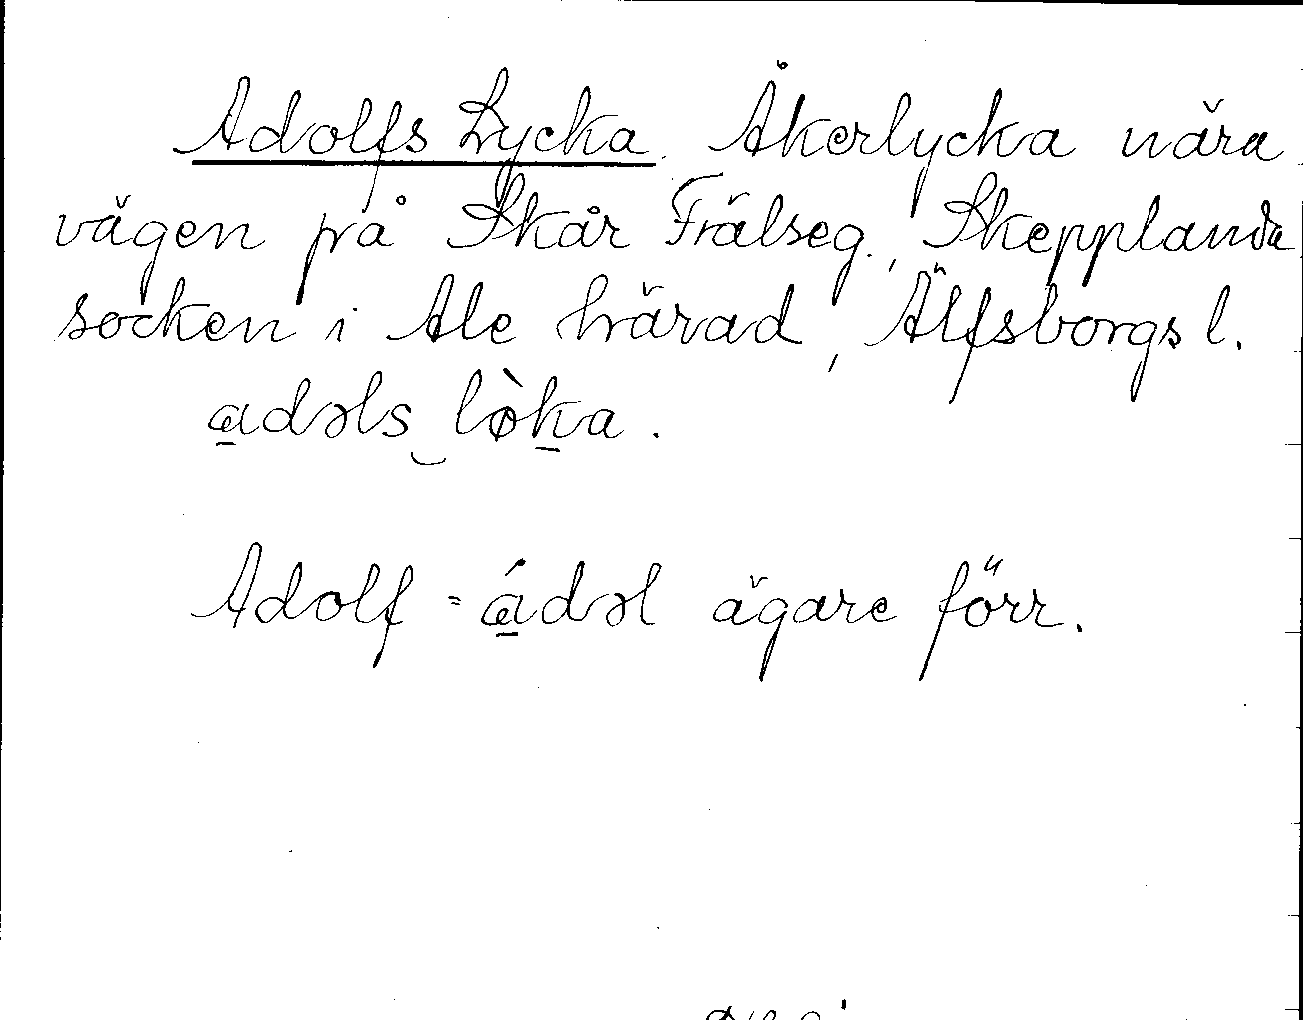 Adolfs Lycka. Åkerlycka nära
vägen på Skår Frälseg., Skepplanda
socken i Ale härad, Älfsborgs l.
a̱dəls‿lø̀ḵa.
Adolf = á̱dəl ägare förr.